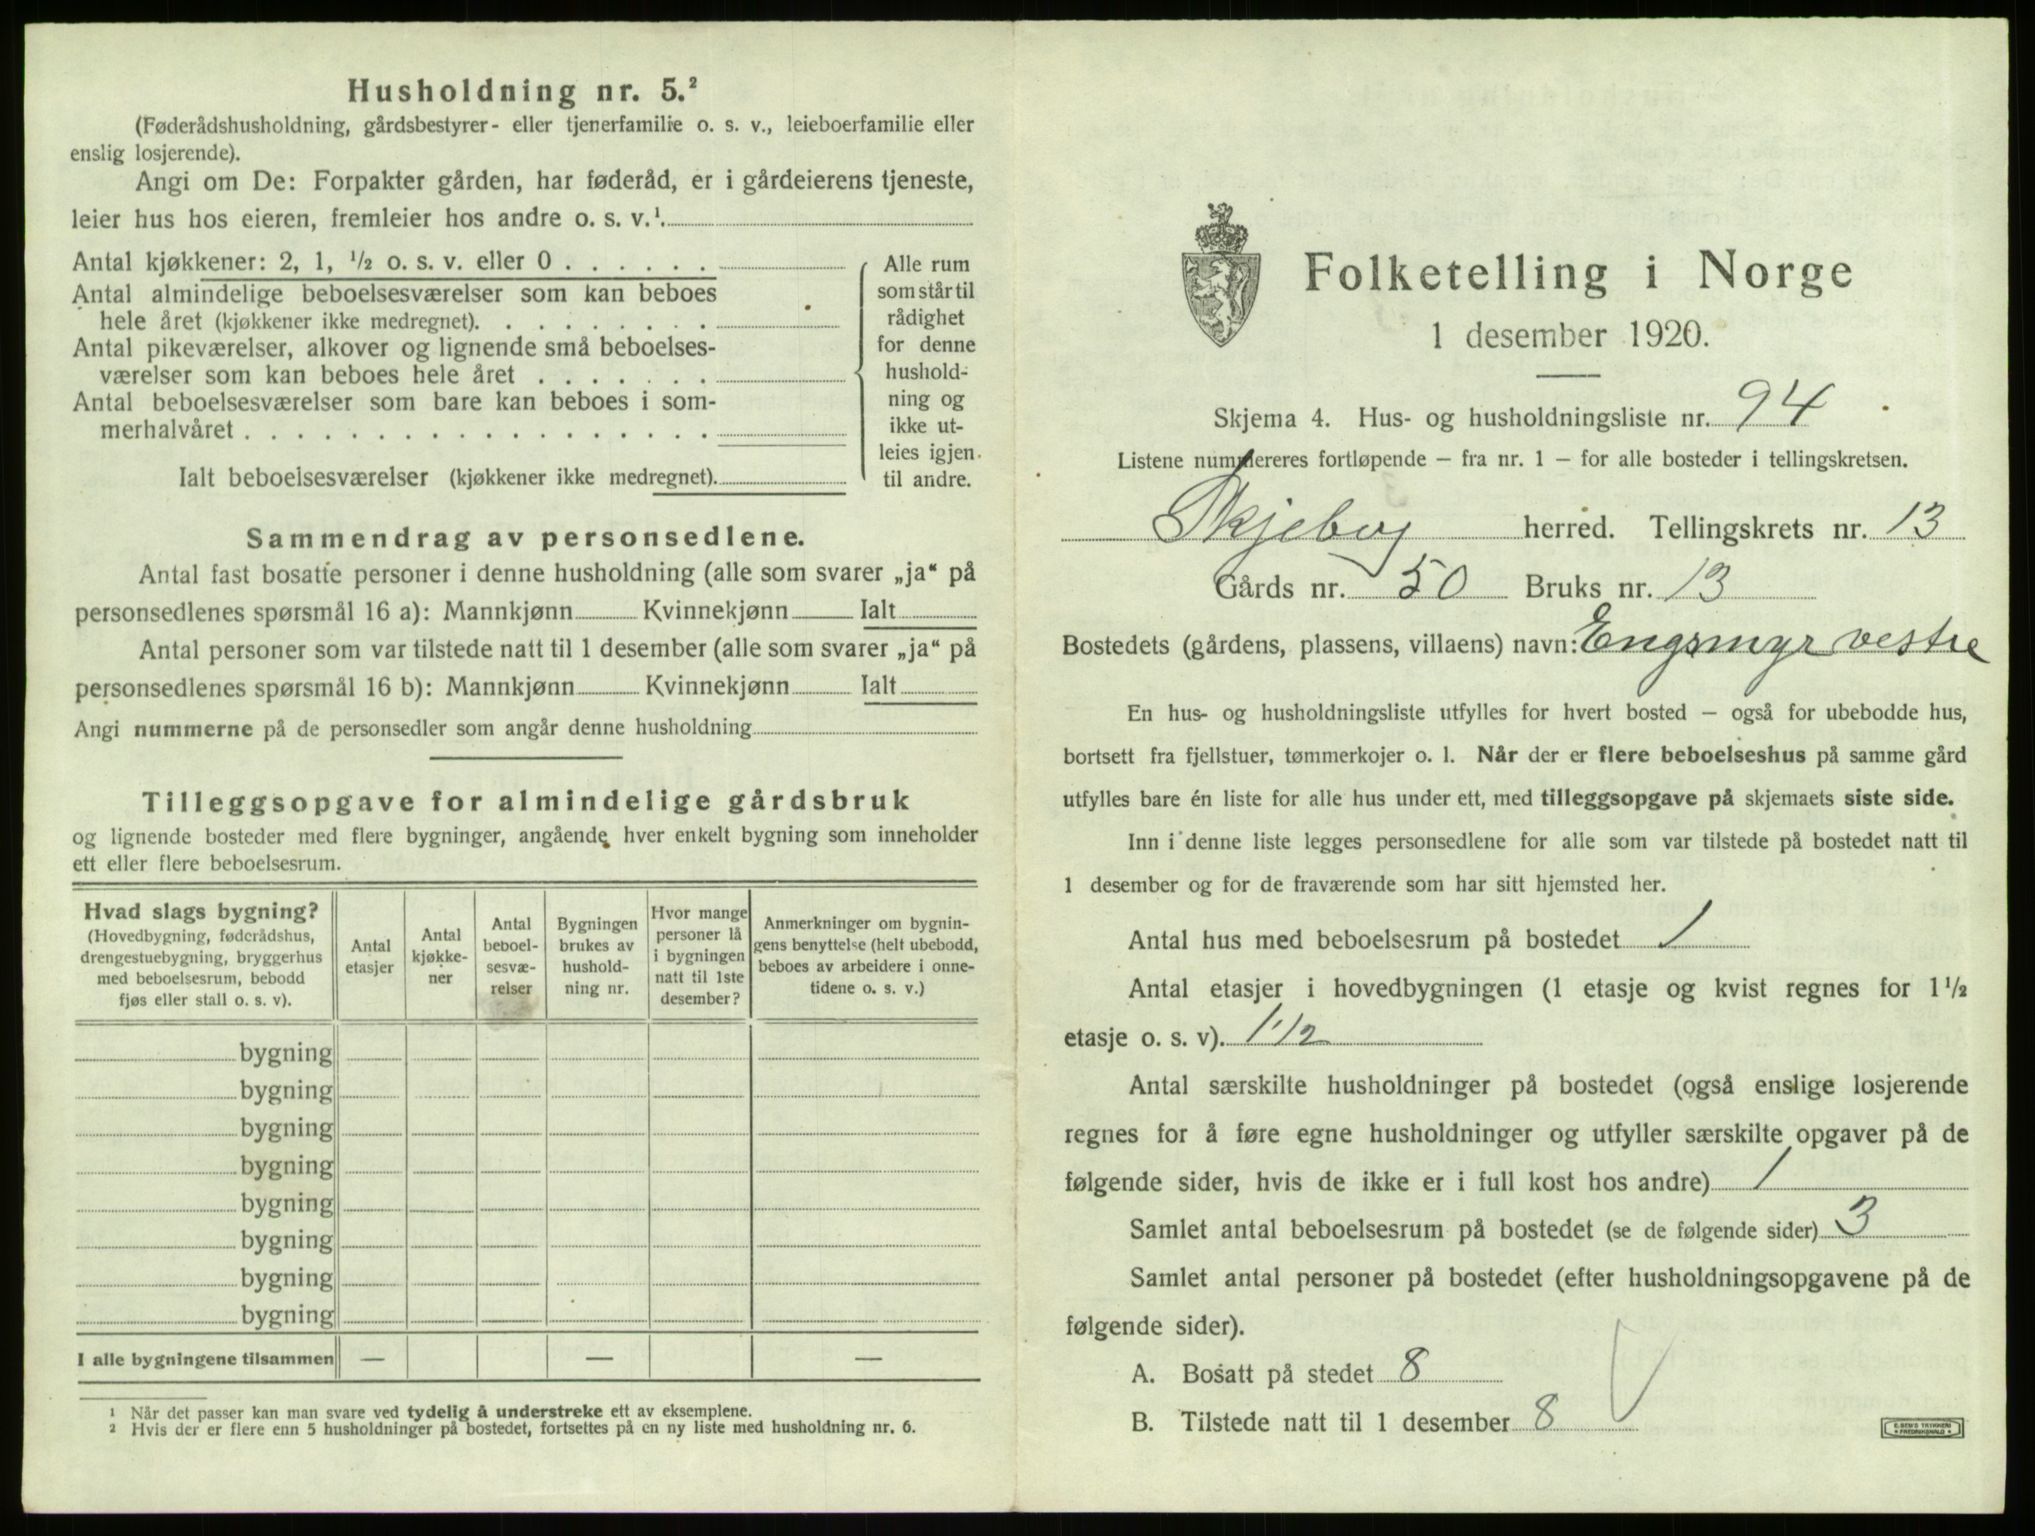 Husholdning nr. 5.²
(Føderådshusholdning, gårdsbestyrer- eller tjenerfamilie o. s. v., leieboerfamilie eller
enslig losjerende).
Angi om De: Forpakter gården, har føderåd, er i gårdeierens tjeneste,
leier hus hos eieren, fremleier hos andre o. s. v.¹.
Antal kjøkkener: 2, 1, ½ o. s. v. eller 0 . . . . . .
Antal almindelige beboelsesværelser som kan beboes
hele året (kjøkkener ikke medregnet). . . . . . . . .
Antal pikeværelser, alkover og lignende små beboelses-
værelser som kan beboes hele året . . . . . . .
Antal beboelsesværelser som bare kan beboes i som-
merhalvåret . . . . . . . . . . . . . . . . . .
Ialt beboelsesværelser (kjøkkener ikke medregnet).
Alle rum
som står til
rådighet
for denne
hushold-
ning og
ikke ut-
leies igjen
til andre.
Sammendrag av personsedlene.
Antal fast bosatte personer i denne husholdning (alle som svarer „ja“ på
personsedlenes spørsmål 16 a): Mannkjønn Kvinnekjønn Ialt
Antal personer som var tilstede natt til 1 desember (alle som svarer „ja“ på
personsedlenes spørsmål 16 b): Mannkjønn Kvinnekjønn Ialt
Angi nummerne på de personsedler som angår denne husholdning
Tilleggsopgave for almindelige gårdsbruk
og lignende bosteder med flere bygninger, angående hver enkelt bygning som inneholder
ett eller flere beboelsesrum.
Hvad slags bygning?
(Hovedbygning, føderådshus,
drengestuebygning, bryggerhus
med beboelsesrum, bebodd
fjøs eller stall o. s. v).
Antal
etasjer
Antal
kjøkke-
ner
Antal
beboel-
sesvæ-
relser
Bygningen
brukes av
hushold-
ning nr.
Hvor mange
personer lå
i bygningen
natt til 1ste
desember?
Anmerkninger om bygnin-
gens benyttelse (helt ubebodd,
beboes av arbeidere i onne-
tidene o. s. v.)
bygning
bygning
bygning
bygning
bygning
bygning
bygning
bygning
I alle bygningene tilsammen — — —
¹ Når det passer kan man svare ved tydelig å understreke ett av eksemplene.
² Hvis der er flere enn 5 husholdninger på bostedet, fortsettes på en ny liste med husholdning nr. 6.
Folketelling i Norge
1 desember 1920.
Skjema 4. Hus- og husholdningsliste nr. 94
Listene nummereres fortløpende — fra nr. 1 — for alle bosteder i tellingskretsen.
Skjeberg herred. Tellingskrets nr. 13
Gårds nr. 50 Bruks nr. 13
Bostedets (gårdens, plassens, villaens) navn: Engsmyr vestre
En hus- og husholdningsliste utfylles for hvert bosted — også for ubebodde hus,
bortsett fra fjellstuer, tømmerkojer o. l. Når der er flere beboelseshus på samme gård
utfylles bare én liste for alle hus under ett, med tilleggsopgave på skjemaets siste side.
Inn i denne liste legges personsedlene for alle som var tilstede på bostedet natt til
1 desember og for de fraværende som har sitt hjemsted her.
Antal hus med beboelsesrum på bostedet 1
Antal etasjer i hovedbygningen (1 etasje og kvist regnes for 1½
etasje o. s. v). 1½
Antal særskilte husholdninger på bostedet (også enslige losjerende
regnes for å føre egne husholdninger og utfyller særskilte opgaver på de
følgende sider, hvis de ikke er i full kost hos andre) 1
Samlet antal beboelsesrum på bostedet (se de følgende sider) 3
Samlet antal personer på bostedet (efter husholdningsopgavene på de
følgende sider).
A. Bosatt på stedet 8
B. Tilstede natt til 1 desember 8